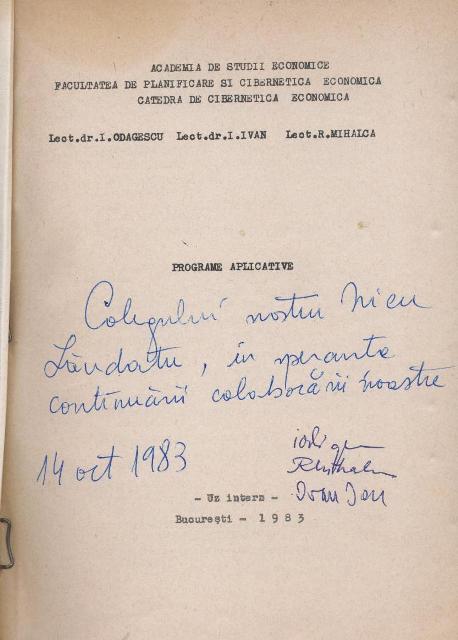 ACADEMIA DE STUDII ECONOMICE
FACULTATEA DE PLANIFICARE SI CIBERNETICA ECONOMICA
CATEDRA DE CIBERNETICA ECONOMICA
Lect.dr.I.ODAGESCU Lect.dr.I.IVAN Lect.R.MIHALCA
PROGRAME APLICATIVE
Colegului nostru Nicu
Lăudatu, în speranța
continuării colaborării noastre
14 oct 1983
Ivan Ion
- Uz intern -
București - 1983